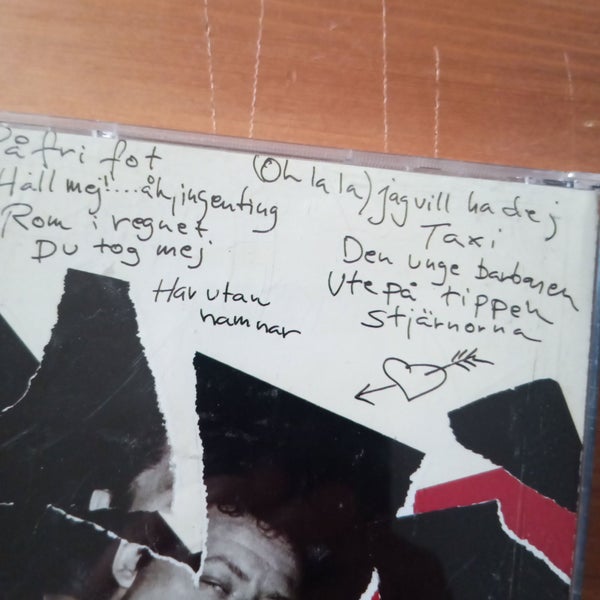 På fri fot
Håll mej!....åh, ingenting
Rom i regnet
Du tog mej
Hav utan
hamnar
(Oh la la) jag vill ha dej
Taxi
Den unge barbaren
Ute på tippen
Stjärnorna